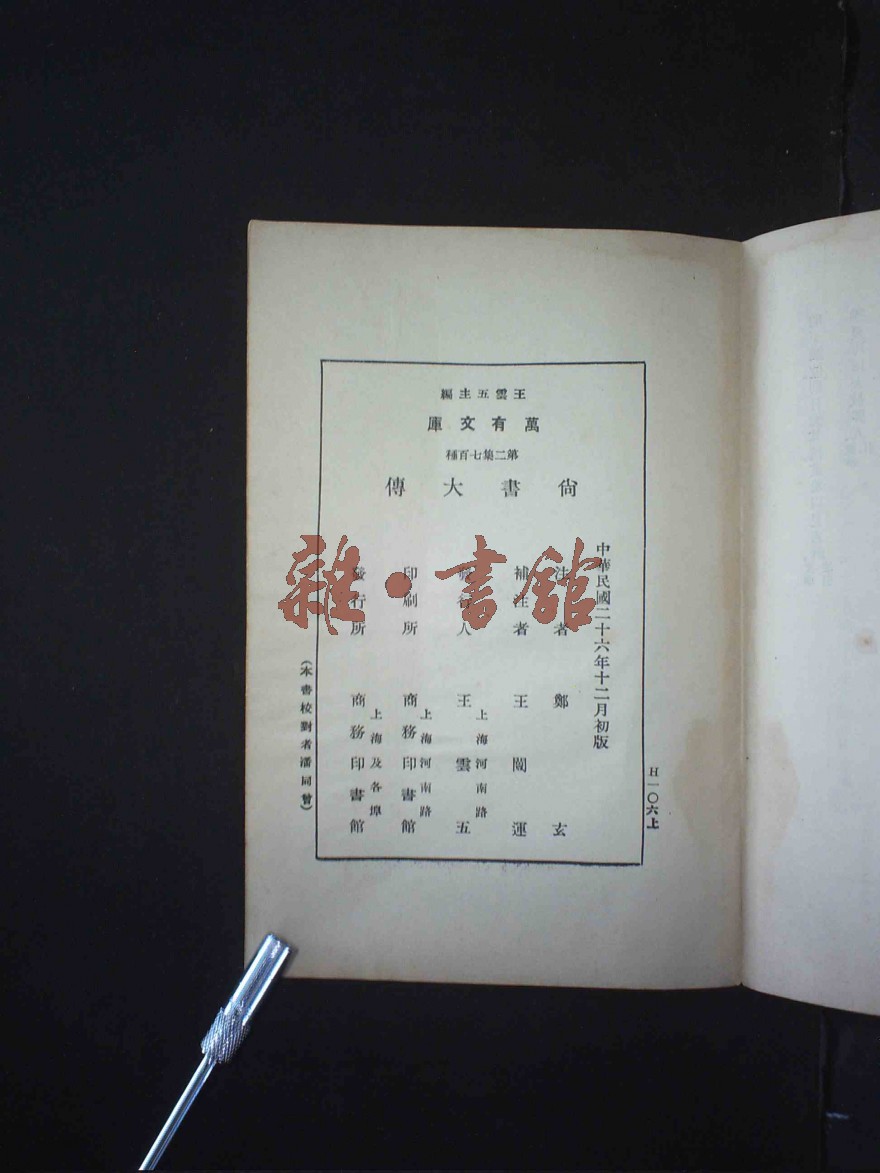 王雲五主編
萬有文庫
第二集七百種
尙書大傳
中華民國二十六年十二月初版
注者 鄭玄
補注者 王闓運
發行人 王雲五
上海河南路
印刷所 商務印書館
上海河南路
發行所 商務印書館
上海及各埠
(本書校對者潘同曾)
H一〇六上
雜·書館